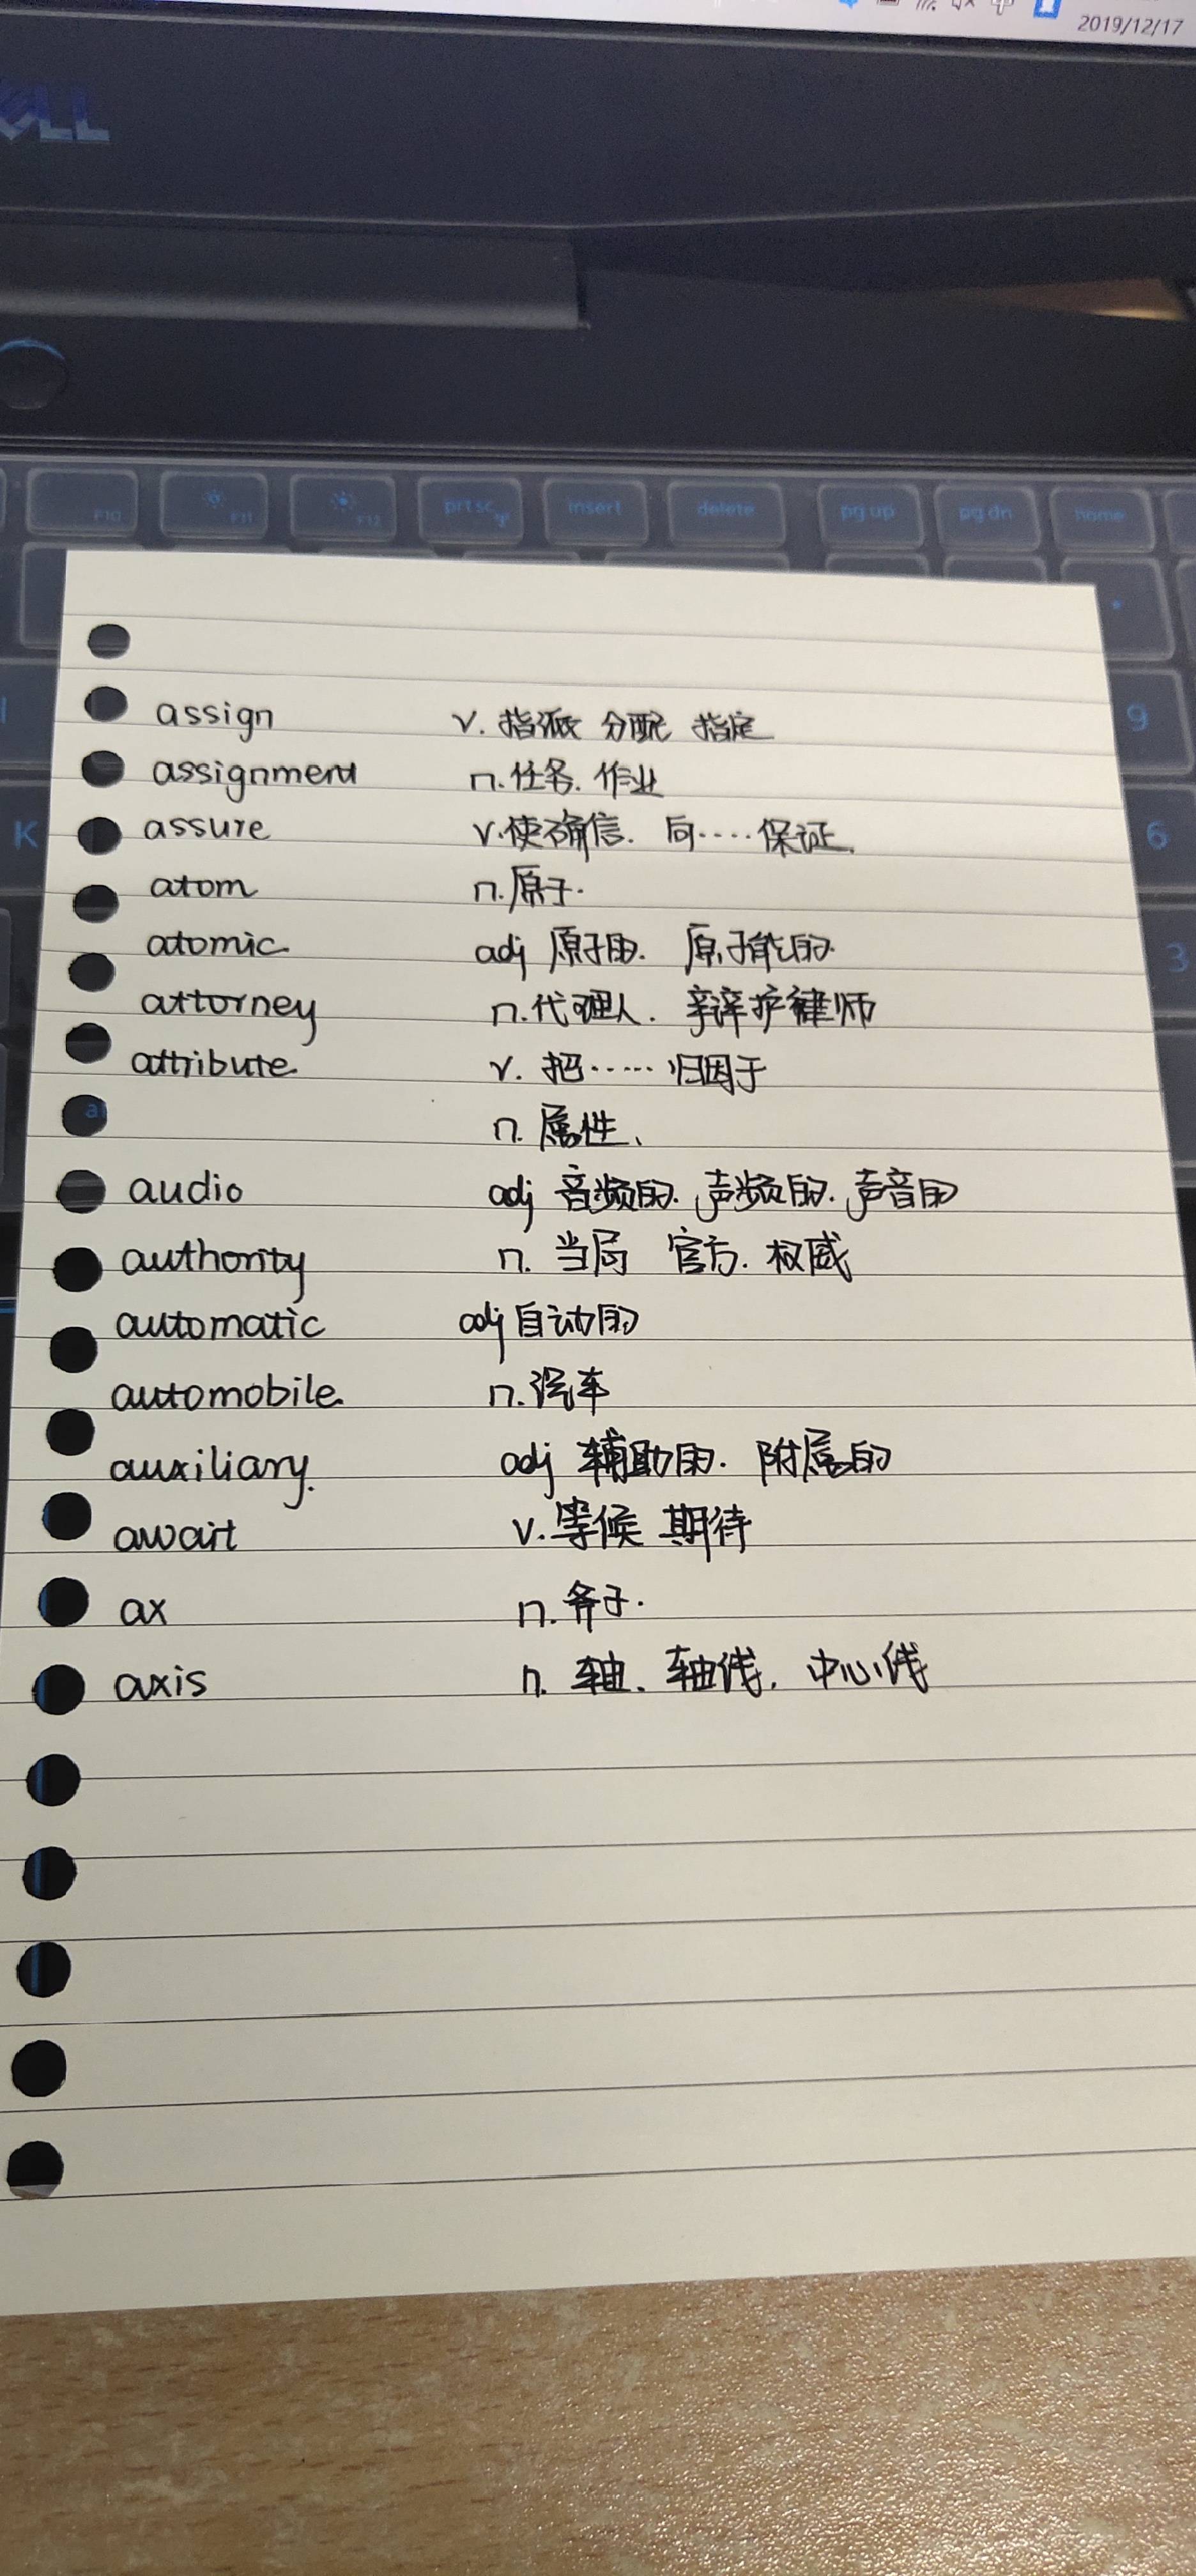 2019/12/17
F10 F11 F12 prt sc insert delete pg up pg dn home
assign v. 指派 分配 指定
assignment n. 任务. 作业
assure v. 使确信. 向……保证.
atom n. 原子.
atomic adj 原子的. 原子能的.
attorney n. 代理人. 辩护律师
attribute v. 把……归因于
n. 属性、
audio adj 音频的. 声频的. 声音的
authority n. 当局 官方. 权威
automatic adj 自动的
automobile n. 汽车
auxiliary. adj 辅助的. 附属的
await v. 等候 期待
ax n. 斧子.
axis n. 轴、轴线, 中心线
9
K 6
3